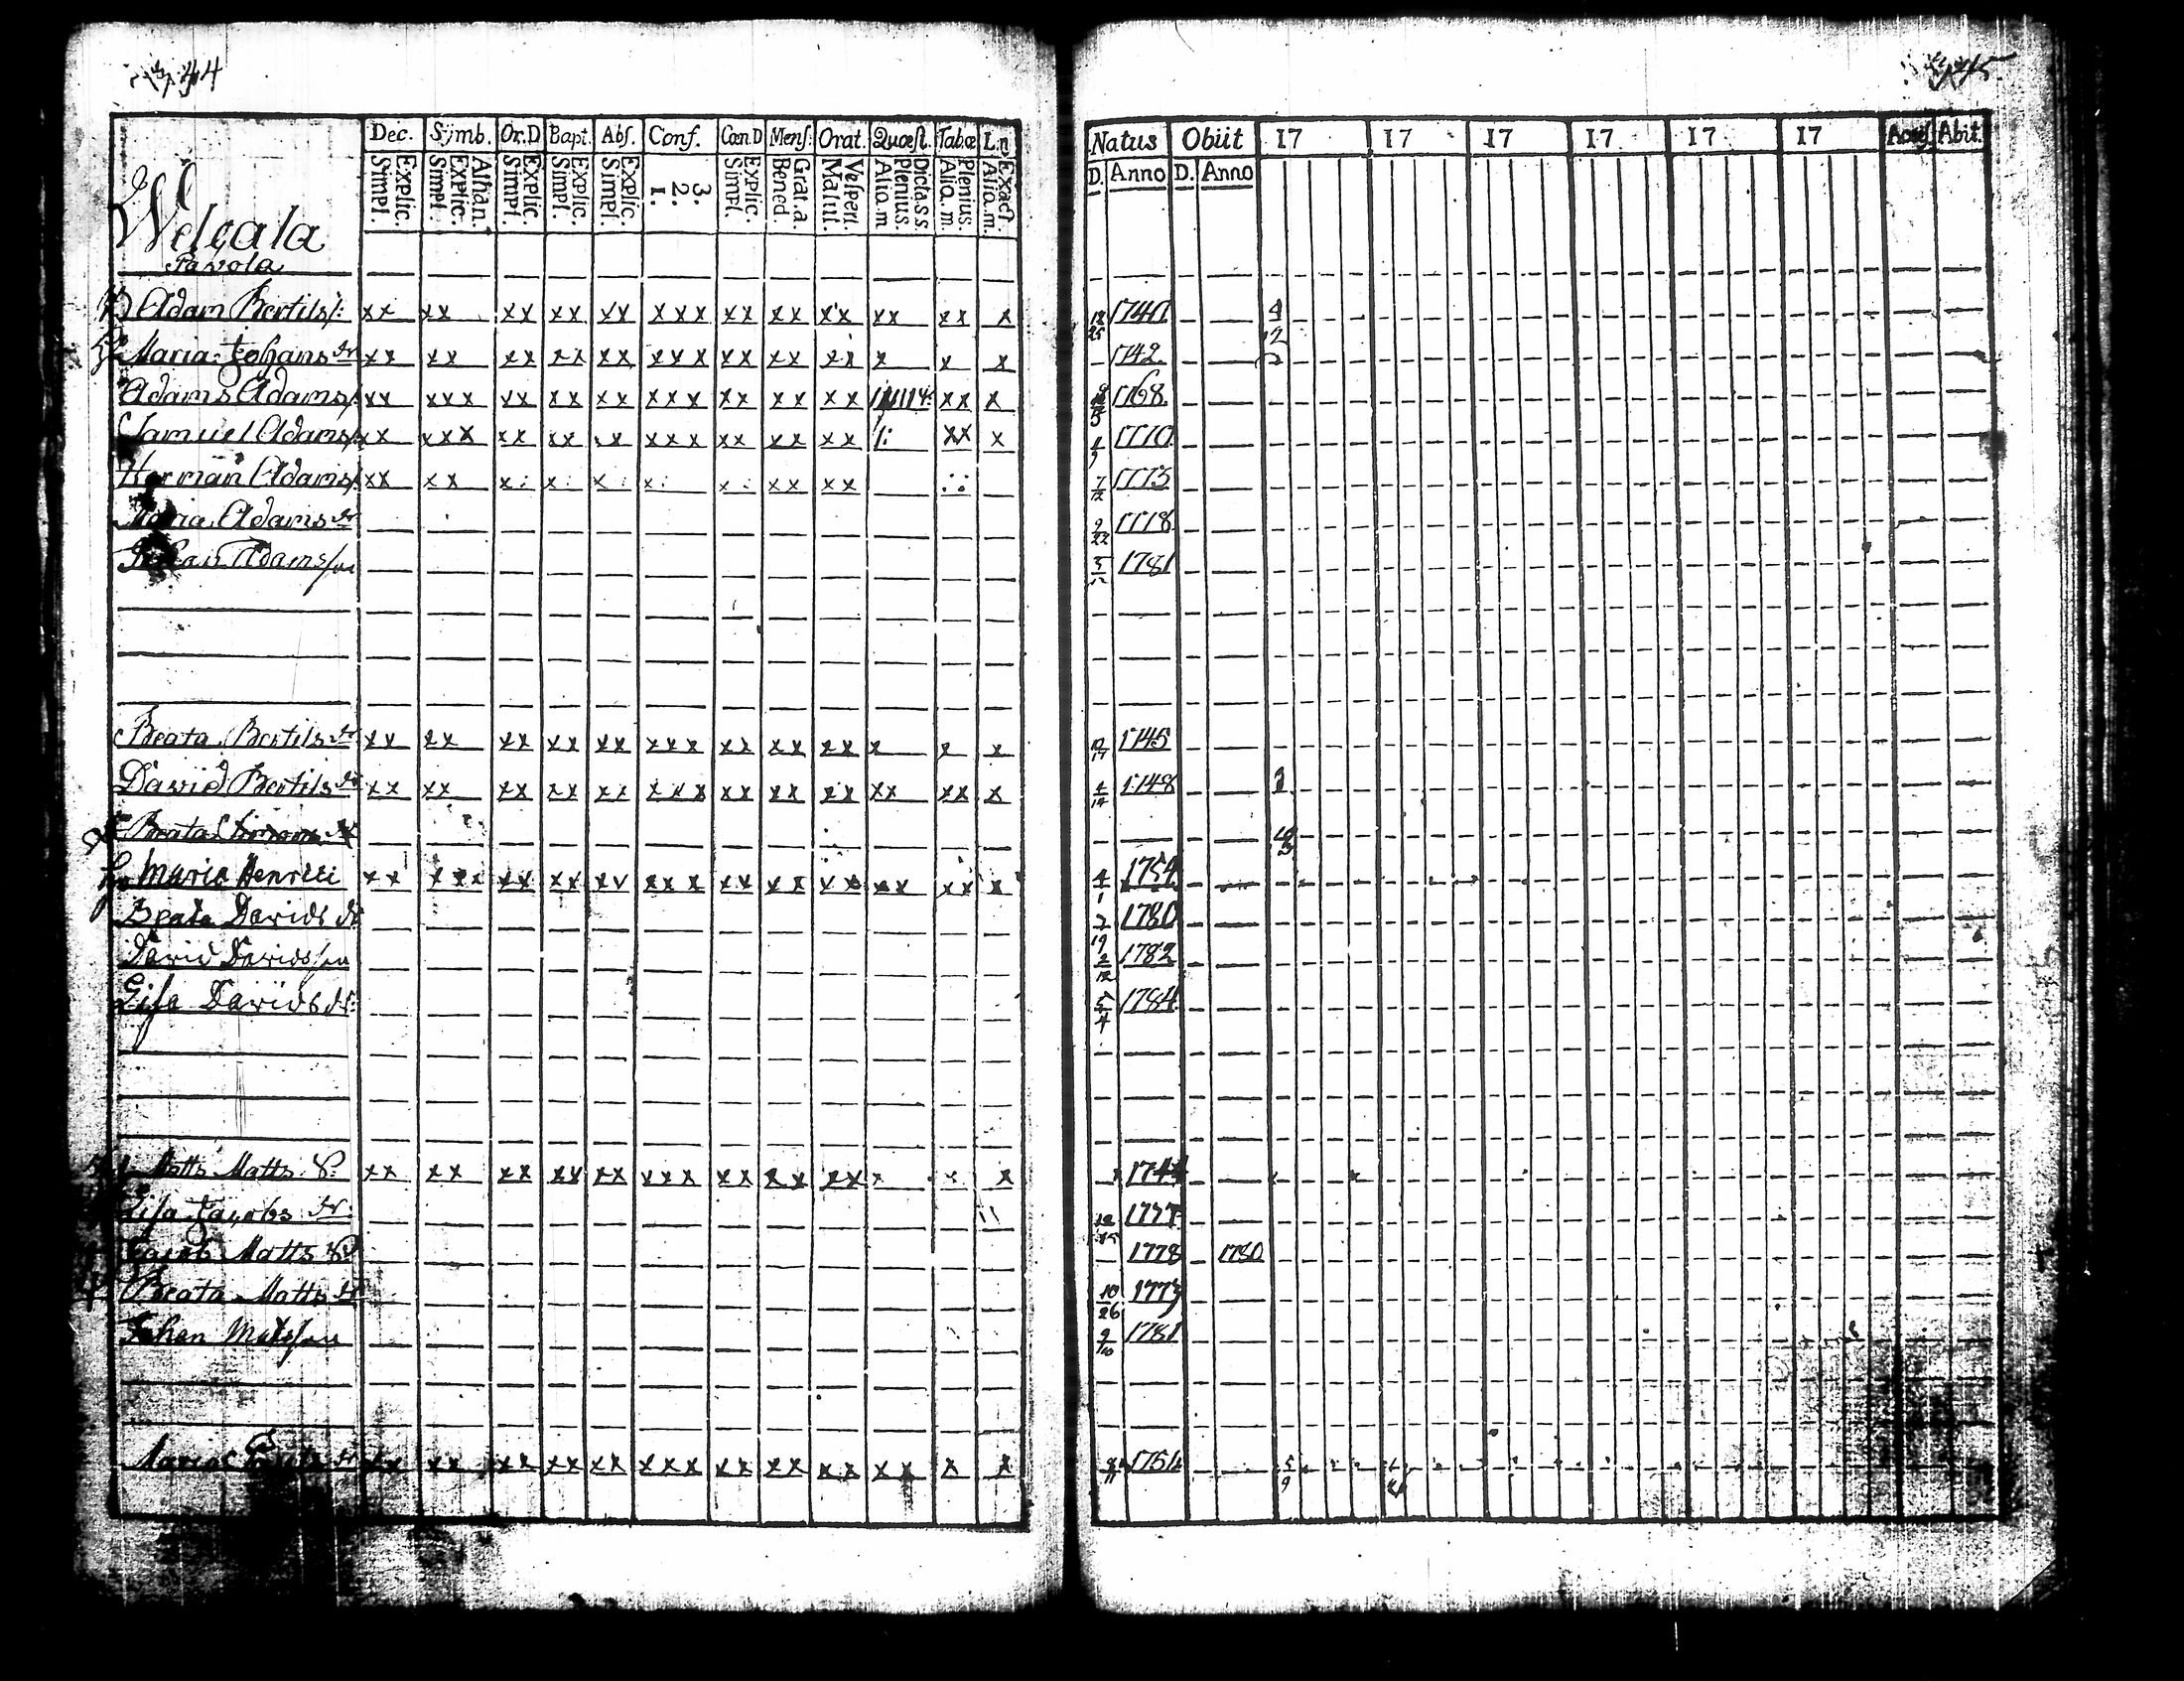 44
Dec. Symb. Or. D Bapt. Abs. Conf. Cœn. D Mens. Orat. Quæst. Tab. œ L. n
Explic. Simpl. Athan. Explic. Simpl. Explic. Simpl. Explic. Simpl. Explic. Simpl. 3. 2. 1. Explic. Simpl. Grat. a. Bened. Vesper. Matut. Dicta. S S Plenius. Aliq. m Plenius. Aliq. m. Exact Aliq. m.
Natus Obiit 17 17 17 17 17 17 Acces Abit.
D. Anno D. Anno
Welcala
Pavola
Adam Bertils xx xx xx xx xx xxx xx xx xx xx xx x 1740
Maria Johans dr xx xx xx xx xx xxx xx xx xx x x x 1742
Adam Adams xx xxx xx xx xx xxx xx xx xx xx x 1768
Samuel Adams xx xxx xx xx xx xxx xx xx xx xx x 1770
Herman Adams xx xx x x x x x xx xx 7/12 1773
Maria Adams dr 2/22 1778
Johan Adamsson 5/12 1781
Beata Bertils dr xx xx xx xx xx xxx xx xx xx x x x 1745
David Bertils xx xx xx xx xx xxx xx xx xx xx xx x 1748
Beata
Maria Henrici xx xxx xx xx xx xxx xx xx xx xx xx x 4/1 1754
Beata Davids dr 2/19 1780
David Davidsson 2/12 1782
Lisa Davids dr 5/4 1784
Matts Matts S. xx xx xx xx xx xxx xx xx xx x x x 1744
Lisa Jacobs dr
Jacob Matts S. 1778 1780
Beata Matts dr 10/26 1773
Johan Matsson 9/10 1781
Maria xx xx xx xx xx xxx xx xx xx xx x x 5/9